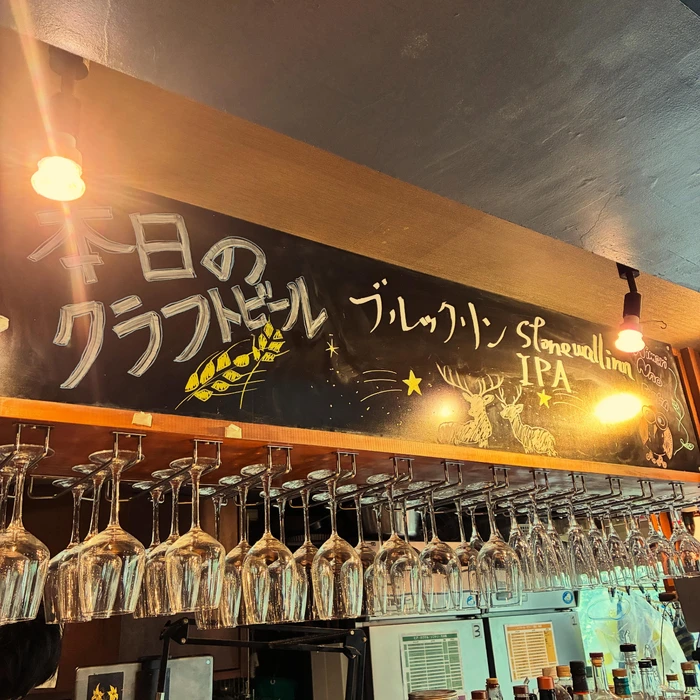 本日の
クラフトビール
ブルックリン Stonewall inn
IPA
3